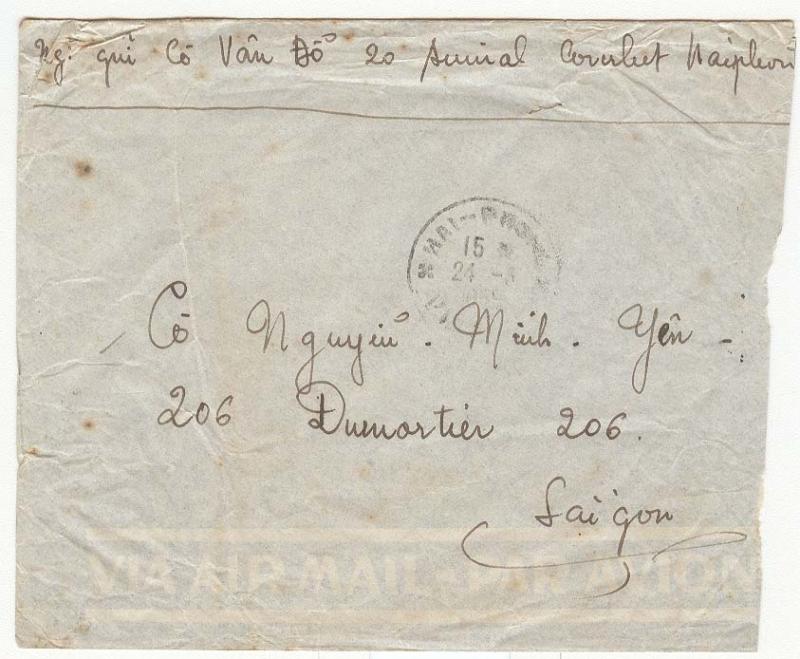 Ng: gưi Cô Vân Đồ 20 Amiral Courbet Haiphon
HAI-PHO
15
24 -
Cô Nguyễn . Minh . Yên -
206 Dumortier 206.
Saigon
VIA AIR MAIL - PAR AVION